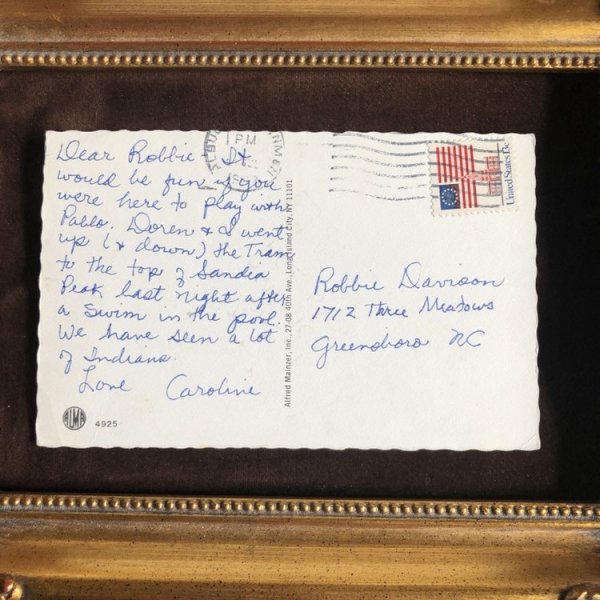 Dear Robbie - It
would be fun if you
were here to play with
Pablo. Doren & I went
up (& down) the Tram
to the top of Sandia
Peak last night after
a swim in the pool.
We have seen a lot
of Indians.
Love Caroline
ALMA
4925
Alfred Mainzer, Inc., 27-08 40th Ave., Long Island City, NY 11101
PM
United States
Robbie Davison
1712 Three Meadows
Greensboro NC